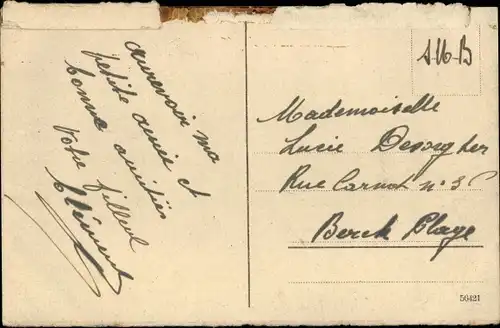 aurevoir ma
petite amie et
bonne amitiés
Votre filleul
Clément
S.M.B
Mademoiselle
Lucie Desorgher
Rue Carnot n°5
Berck Plage
50421